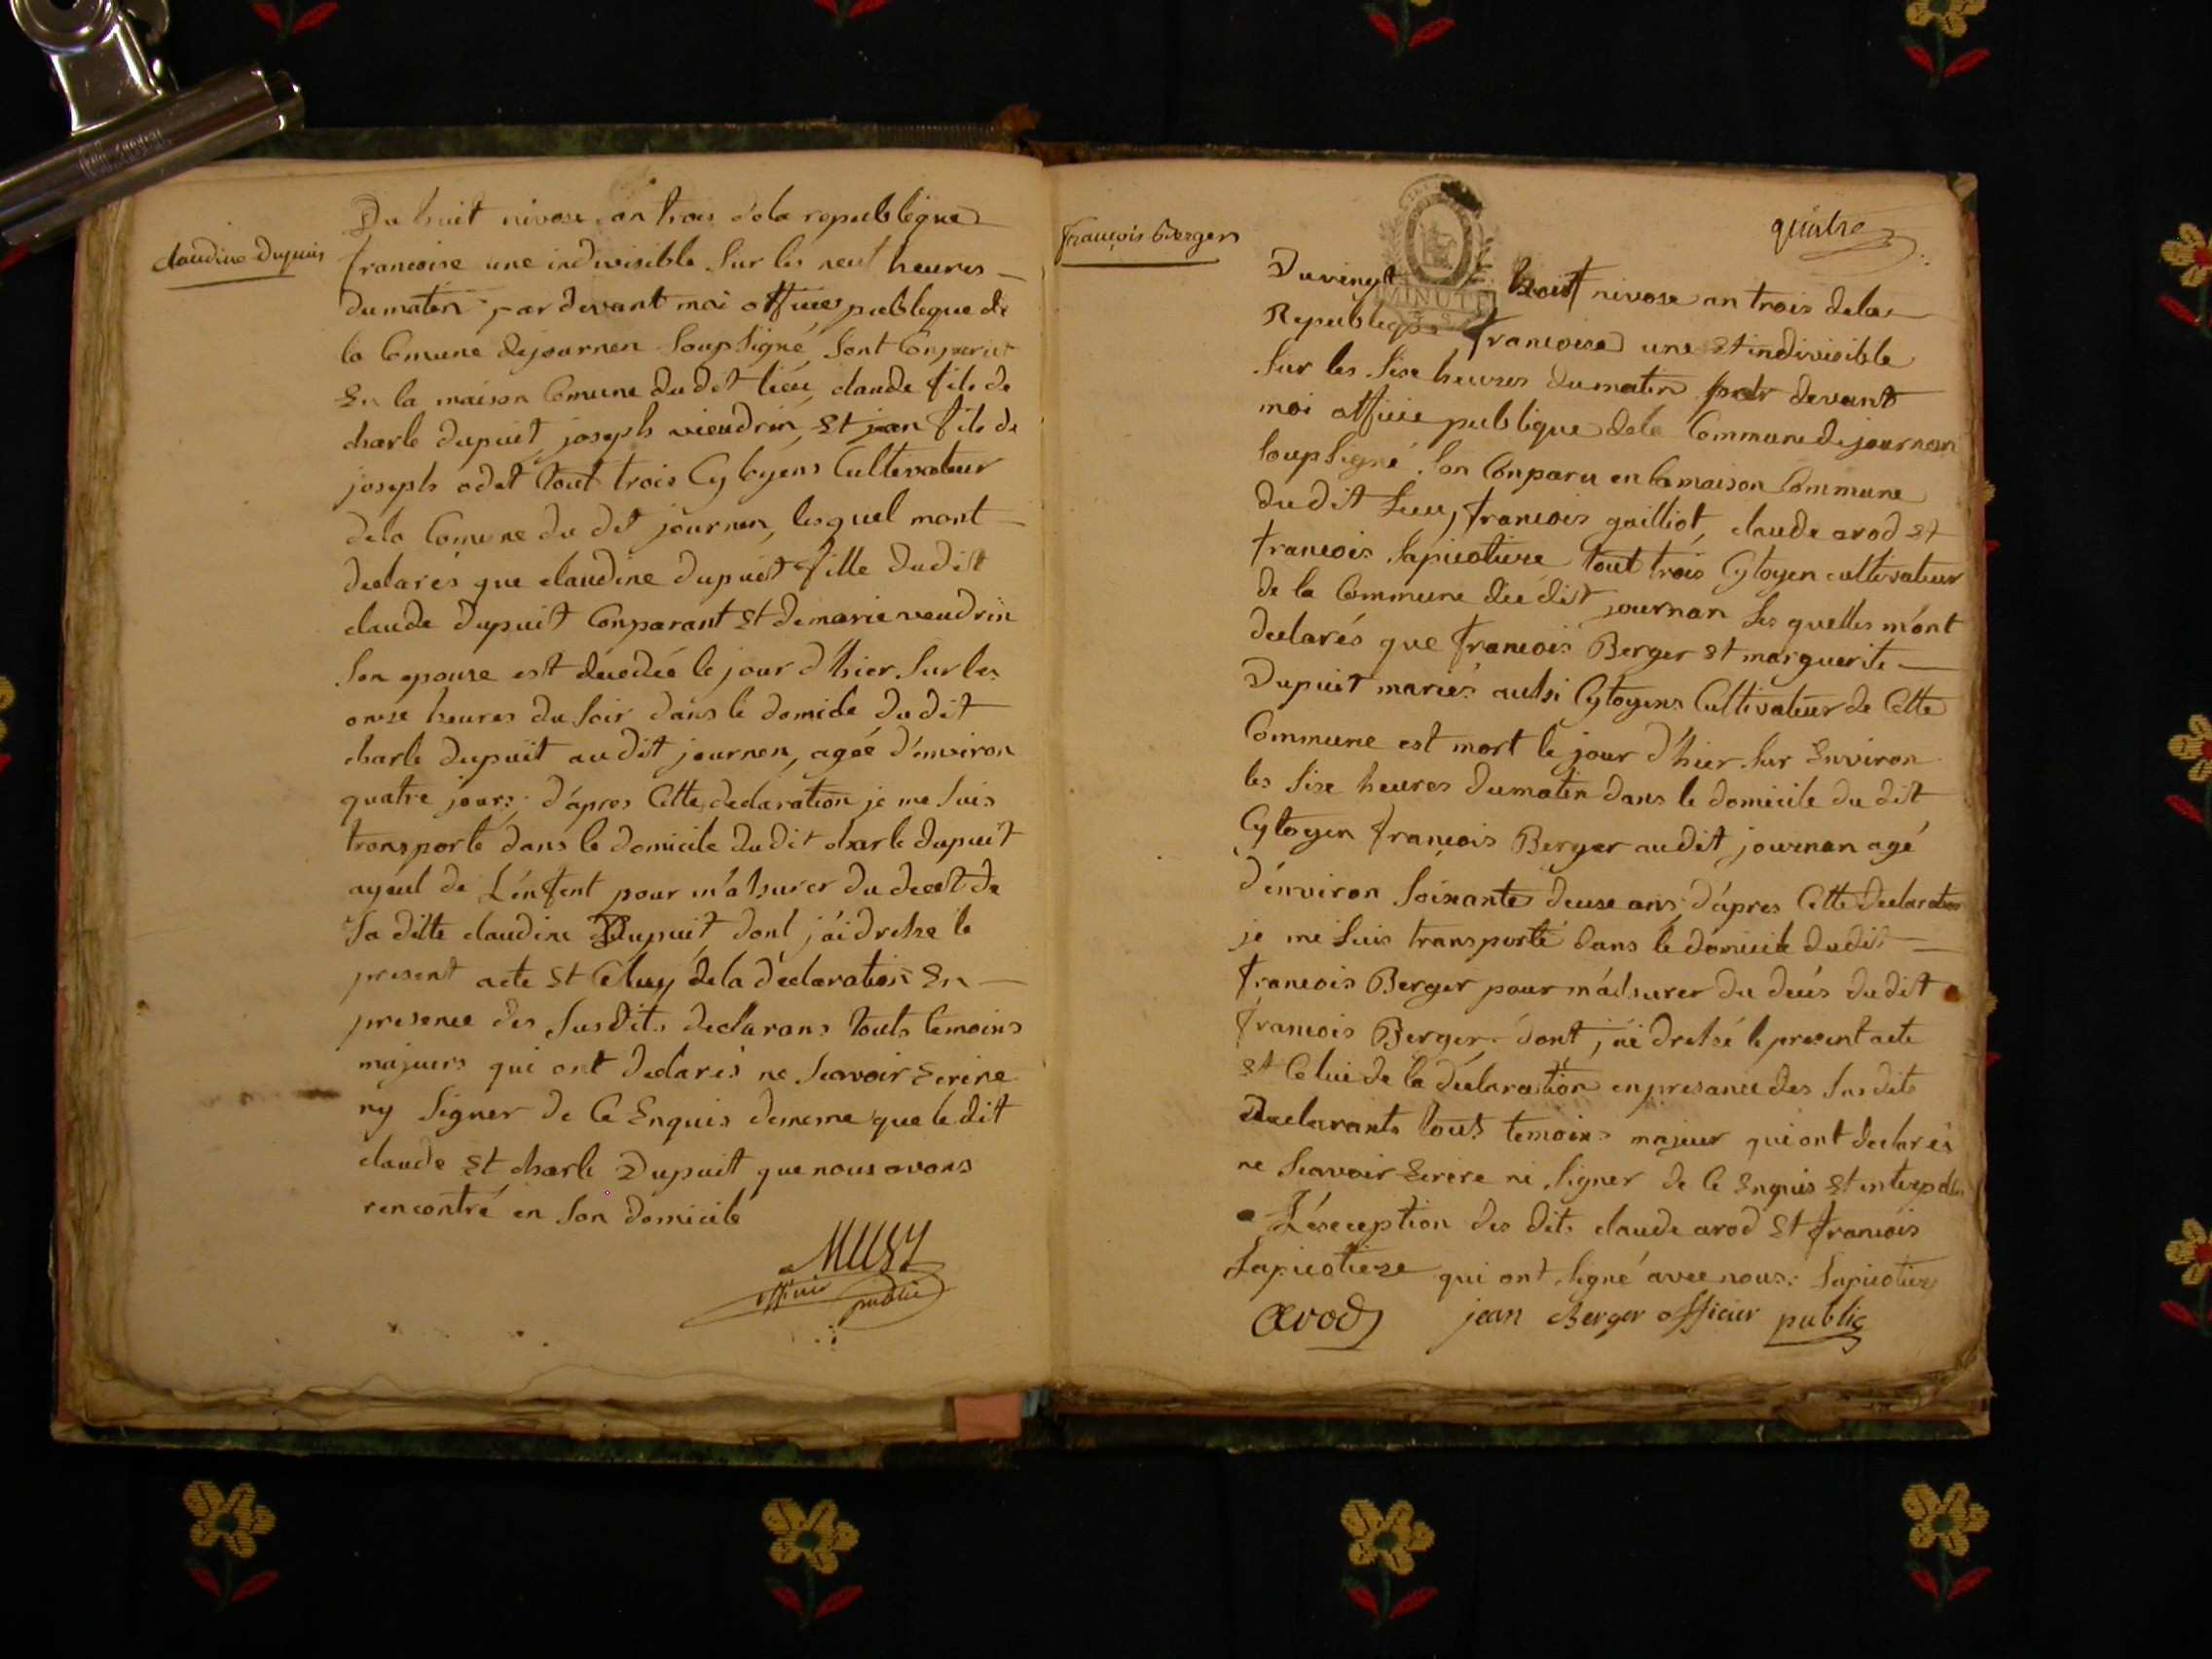 claudine Dupuis
Du huit nivose an trois dela republique
francoise une indivisible Sur les neuf heures
dumatin par devant moi officier publique de
la Comune dejournen Soupsigné, Sont Conparut
En la maison Comune dudit lieu, claude fils de
charle dupuit, joseph vieudrin, Et jean fils de
joseph odet tout trois Cytoyens Cultivateur
dela Comune du dit journen, lesquel mont
declarés que claudine dupuit fille dudit
claude dupuit Conparant Et demarie veudrin
Son epouse est décedée le jour d'hier Sur les
onze heures du Soir dans le domicile du dit
charle dupuit audit journen, agée d'environ
quatre jours; d'apres Cette declaration je me Suis
transporté dans le domicile dudit charle dupuit
ayeul de L'enfent pour m'assurer du decet de
la ditte claudine Dupuit dont j'ai dresse le
present acte Et Celuy dela declaration En
presence des Susdits declarans touts temoins
majeurs qui ont declarés ne Scavoir Ecrire
ny Signer de Ce Enquis demesme que le dit
claude Et charle Dupuit que nous avons
rencontré en Son domicile
MUSY
officie public
quatre
françois Berger
MINUTE
Du vingt huit nivose an trois dela
Republique francoise une Et indivisible
Sur les Sixe heures dumatin par devant
moi officie publique dela Commune dejournan
Soupsigné Son Conparu en lamaison Commune
du dit Lieu, francois guilliot, claude arod Et
francois Lapicotiere tout trois Cytoyen cultivateur
de la Commune du dit journan Les quelles m'ont
declarés que francois Berger Et marguerite
Dupuit mariés aussi Cytoyens Cultivateur de Cette
Commune est mort le jour d'hier Sur Environ
les Sixe heures dumatin dans le domicile du dit
Cytoyen francois Berger audit journan agé
d'environ Soixante deuxe ans; d'apres Cette declaration
je me Suis transporté dans le domicile dudit
francois Berger pour m'assurer du decés du dit
francois Berger, dont j'ai dressé le present acte
Et Celui de la déclaration en presance des Susdits
Declarants touts temoins majeur qui ont declarés
ne Scavoir Ecrire ni Signer de Ce Enquis Et
L'éxception des dits claude arod Et francois
Lapicotiere qui ont Signé avec nous: Lapicotiere
arod jean Berger officier public